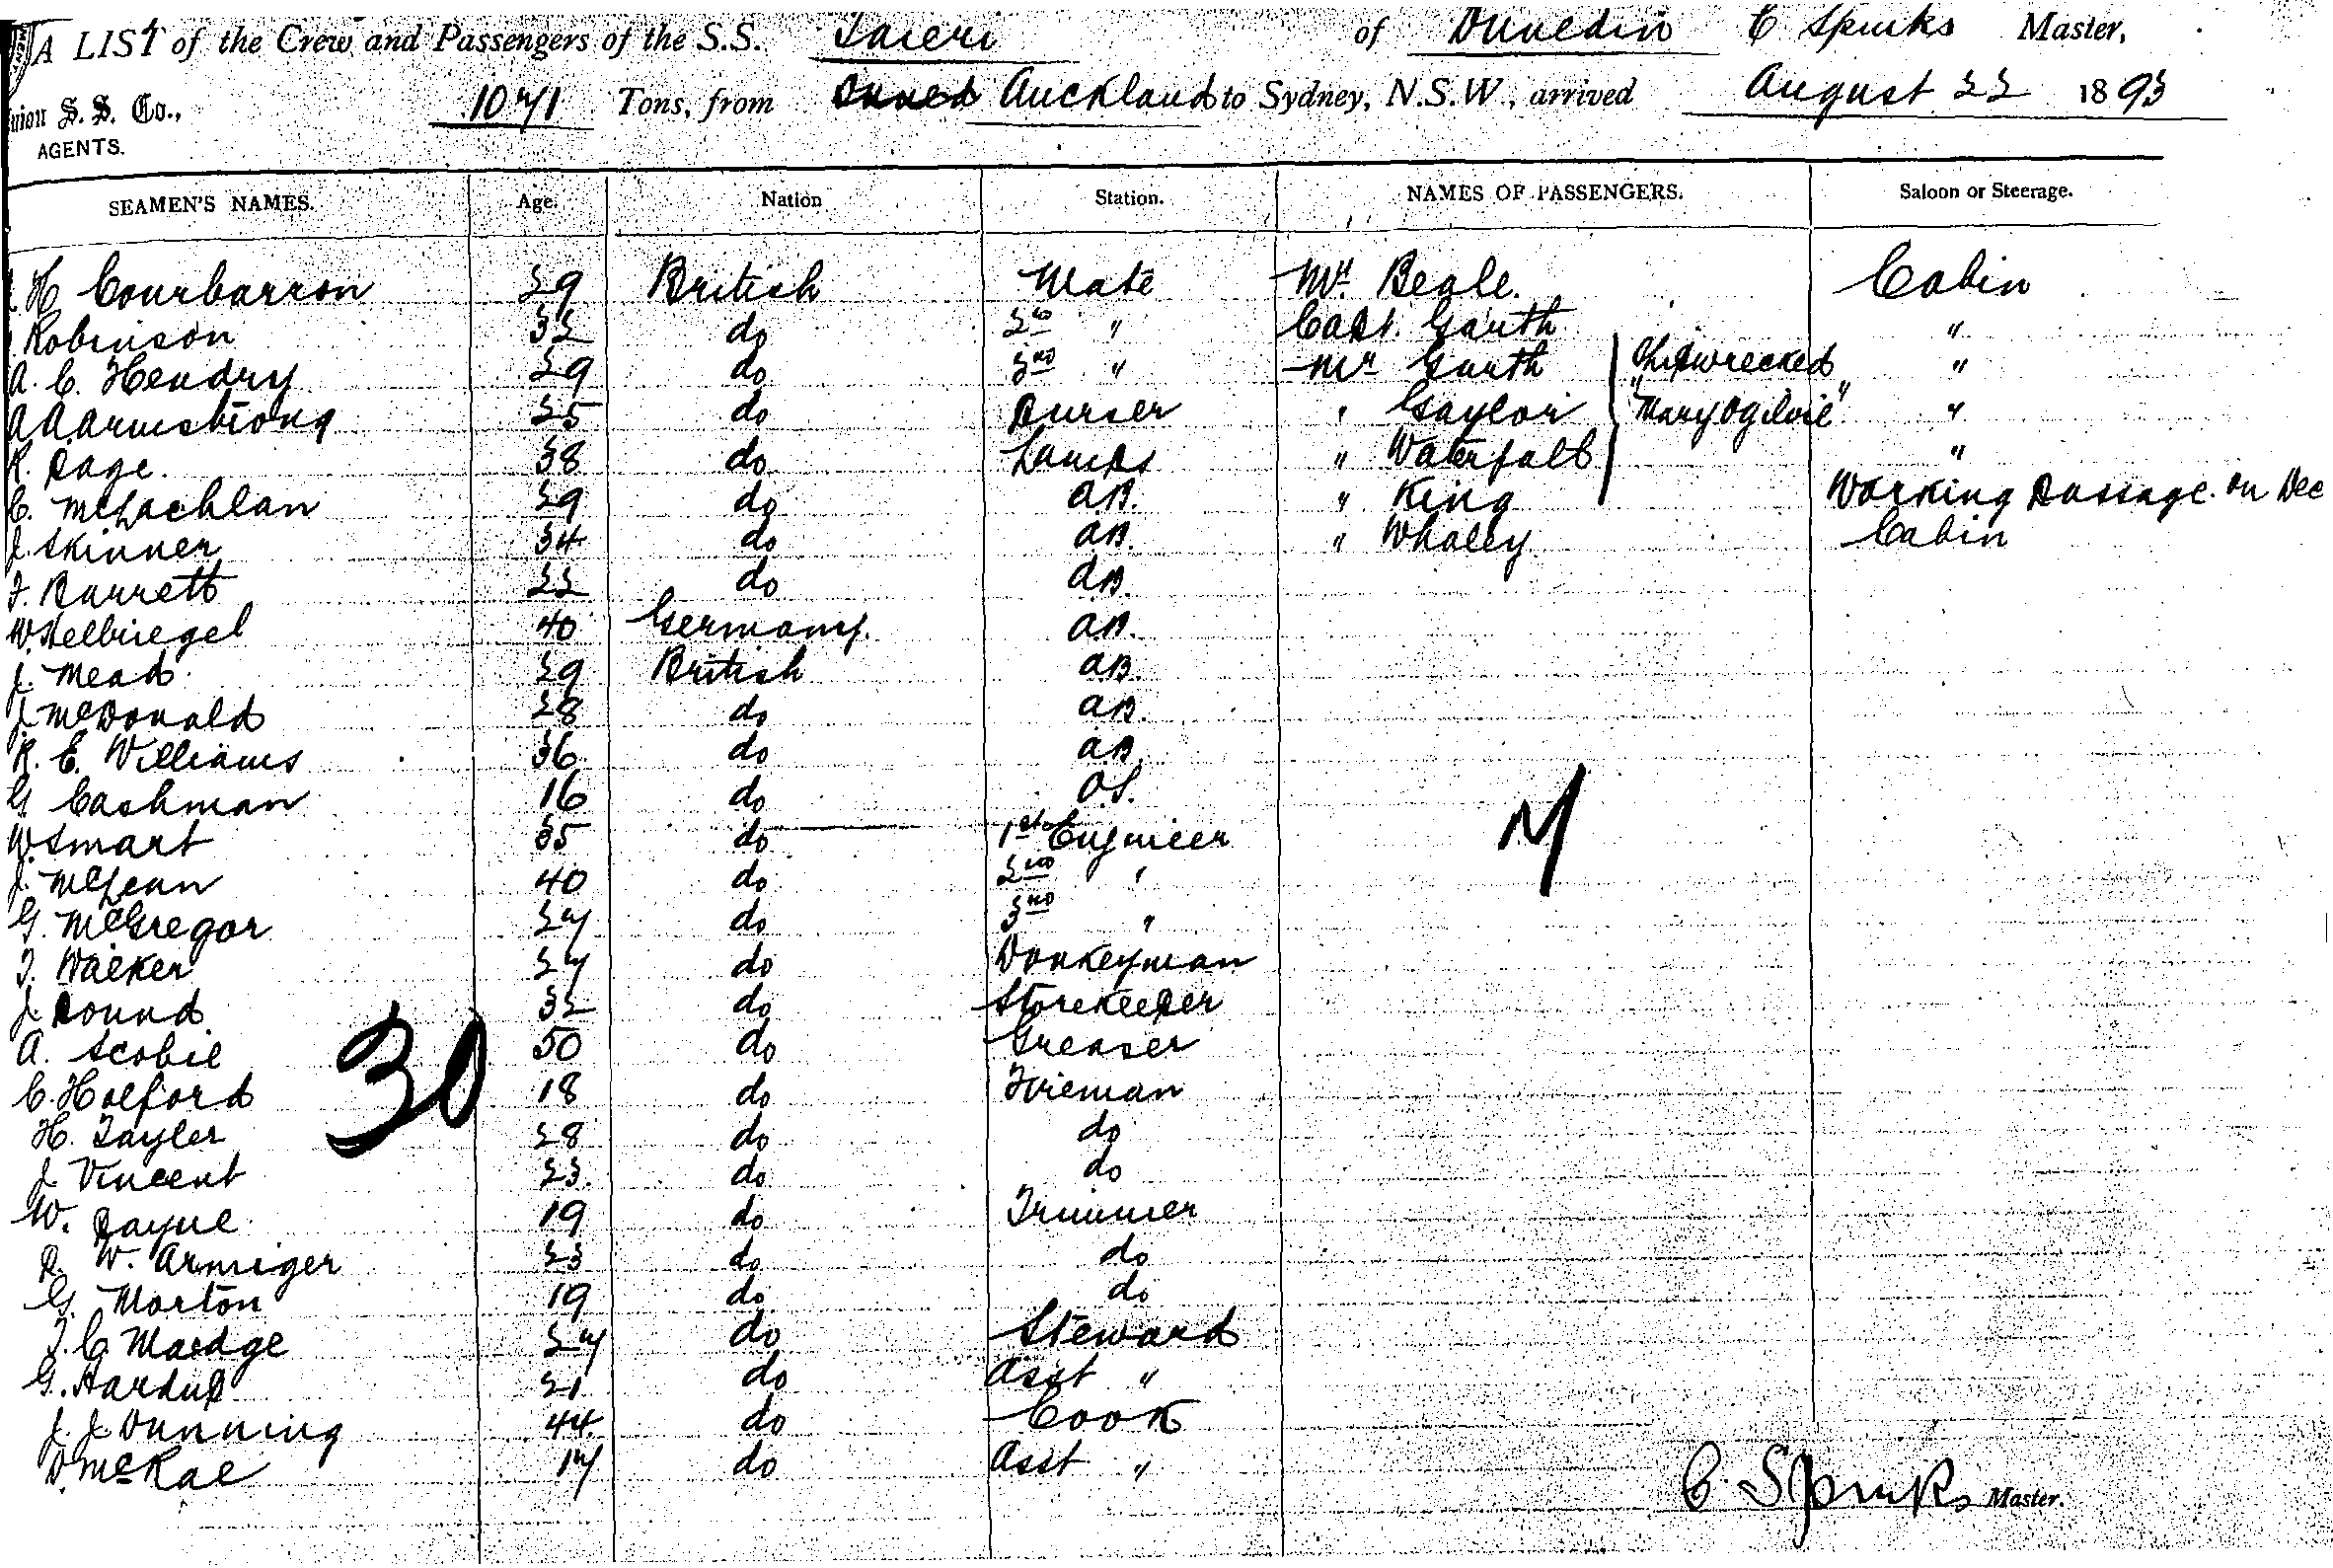 A LIST of the Crew and Passengers of the S.S. Taieri of Dunedin C Spinks Master,
Union S. S. Co., AGENTS. 1071 Tons, from Auckland to Sydney, N.S.W., arrived August 22 1893
SEAMEN'S NAMES. Age. Nation Station. NAMES OF PASSENGERS. Saloon or Steerage.
H Courbarron 29 British Mate Mr. Beale. Cabin
Robinson 32 do 2nd " Capt. Garth "
A. C. Hendry 29 do 3rd " Mr Garth Shipwrecked "
A A Armstrong 25 do Purser " Gaylor "Mary Ogilvie" "
R. Page. 38 do Lamps " Waterfall "
C. McLachlan 29 do AB. " King Working Passage. on Dec
J. Skinner 34 do AB. " Whaley Cabin
F. Barrett 22 do AB.
W. 40 Germany. AB.
J. Mead 29 British AB.
J. McDonald 28 do AB.
R. E. Williams 36 do AB
G Cashman 16 do O.S.
W. Smart 35 do 1st Engineer
J. McLean 40 do 2nd "
G. McGregor 27 do 3rd "
T. Walker 27 do Donkeyman
J Pound 32 do Storekeeper
A. Scobie 50 do Greaser
C. Holford 18 do Fireman
30
H. Tayler 28 do do
J Vincent 23. do do
W. Payne 19 do Trimmer
R. W. Armiger 23 do do
G. Morton 19 do do
T. C. Maedge 27 do Steward
G. Hardup 21 do Asst "
J. J Dunning 44. do Cook
D. McRae 17 do Asst "
C. Spinks Master.